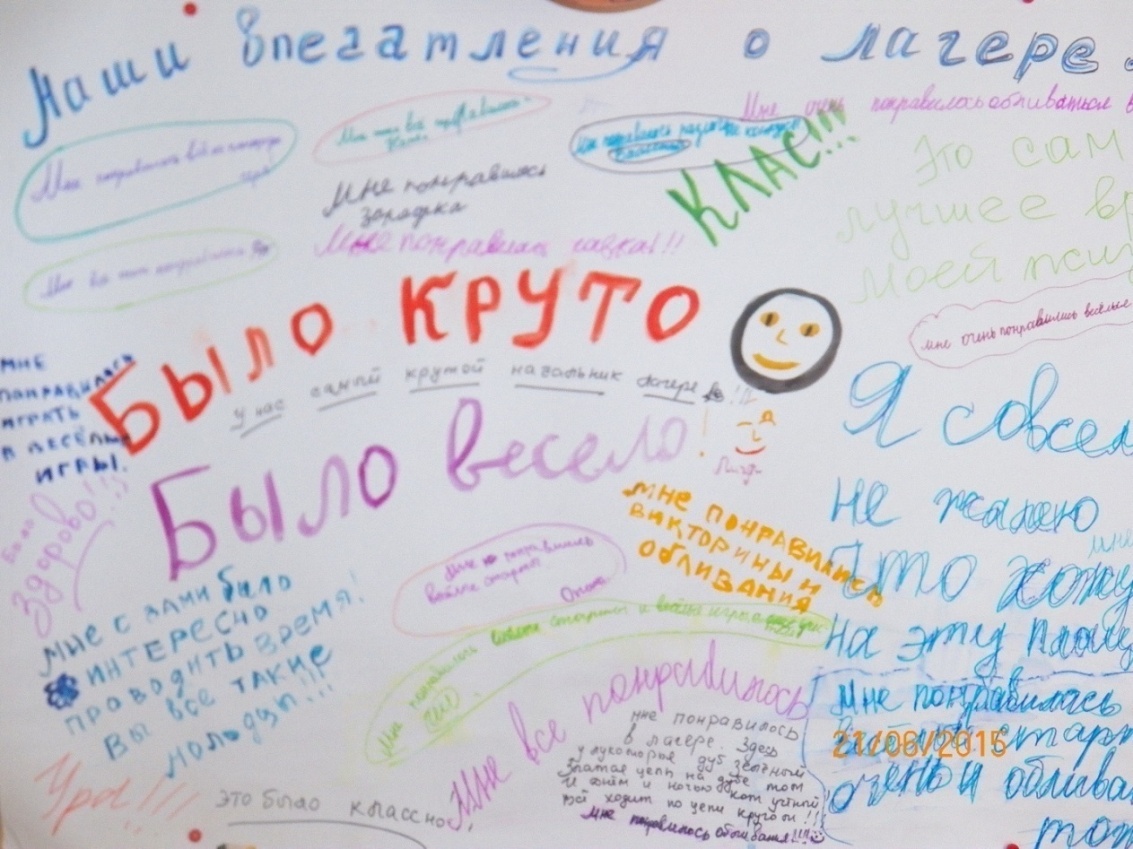 Наши впечатления о лагере
Мне очень понравилось обливаться в
Мне понравилось
Мне понравилась
КЛАС!!!
Это сам
Мне понравилась
зарядка
лучшее вр
Мне понравилась !!!
моей
БЫЛО КРУТО
мне очень понравились весёлые
МНЕ
ПОНРАВИЛОСЬ
ИГРАТЬ
В ВЕСЁЛЫЕ
ИГРЫ.
у нас самый крутой начальник лагеря
Я совсем
не жалею
Что хожу
на эту площ
Было весело!
Было
Здорово!!!
МНЕ ПОНРАВИЛИСЬ
ВИКТОРИНЫ И
ОБЛИВАНИЯ
Мне понравились
Весёлые старты
Мне с вами было
ИНТЕРЕСНО
ПРОВОДИТЬ ВРЕМЯ!
ВЫ ВСЕ ТАКИЕ
МОЛОДЦЫ!!!
Мне понравились
Мне все понравилось
мне понравилось
в лагере. Здесь
у лукоморья дуб зелёный
Златая цепь на дубе том
И днём и ночью кот учёный
Всё ходит по цепи кругом!!
мне понравилось обливаться!!!
Мне понравилась
старт
очень и облива
тож
21/06/2015
Ура!!!!
это было классно,